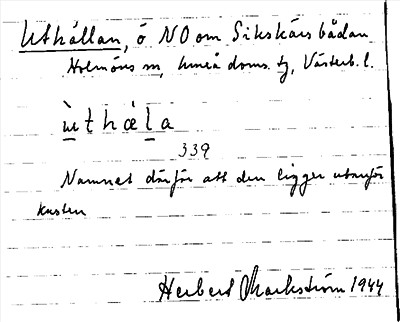 Uthällan, ö NO om Sikskärsbådan
Holmöns sn, Umeå doms. tg, Västerb. l.
ùthàla
339
Namnet därför att den ligger utanför
kusten
Herbert Markström 1944